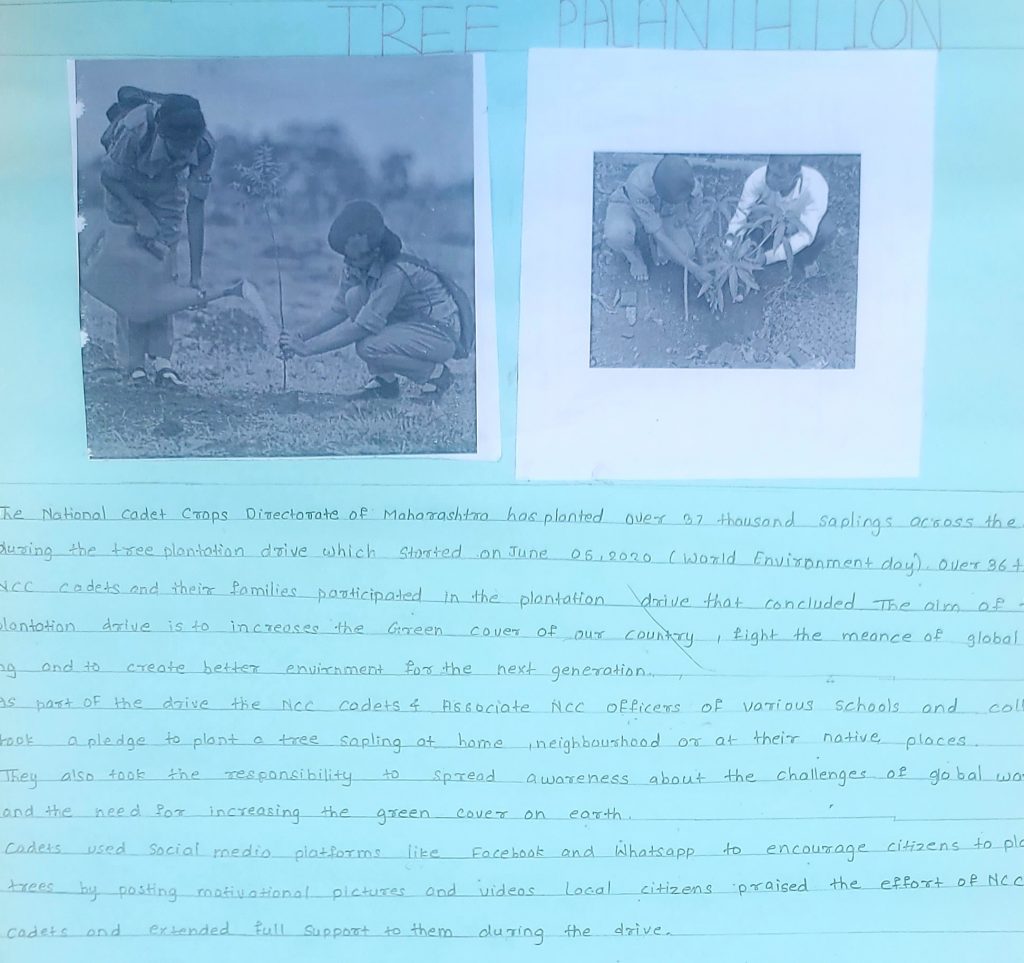 TREE PALANTHTION
The National Cadet Crops Directorate of Maharashtra has planted over 37 thousand saplings across the
during the tree plantation drive which started on June 05,2020 (World Environment day). over 36
NCC cadets and their families participated in the plantation drive that concluded The aim of
plantation drive is to increases the Green cover of our country, fight the meance of global
and to create better envirnment for the next generation.
as part of the drive the NCC cadets & Associate NCC officers of various schools and
took a pledge to plant a tree sapling at home, neighbourhood or at their native places.
They also took the responsibility to spread awareness about the challenges of global
and the need for increasing the green cover on earth.
cadets used social media platforms like Facebook and Whatsapp to encourage citizens to
trees by posting motivational pictures and videos Local citizens praised the effort of NCC
cadets and extended full support to them during the drive.